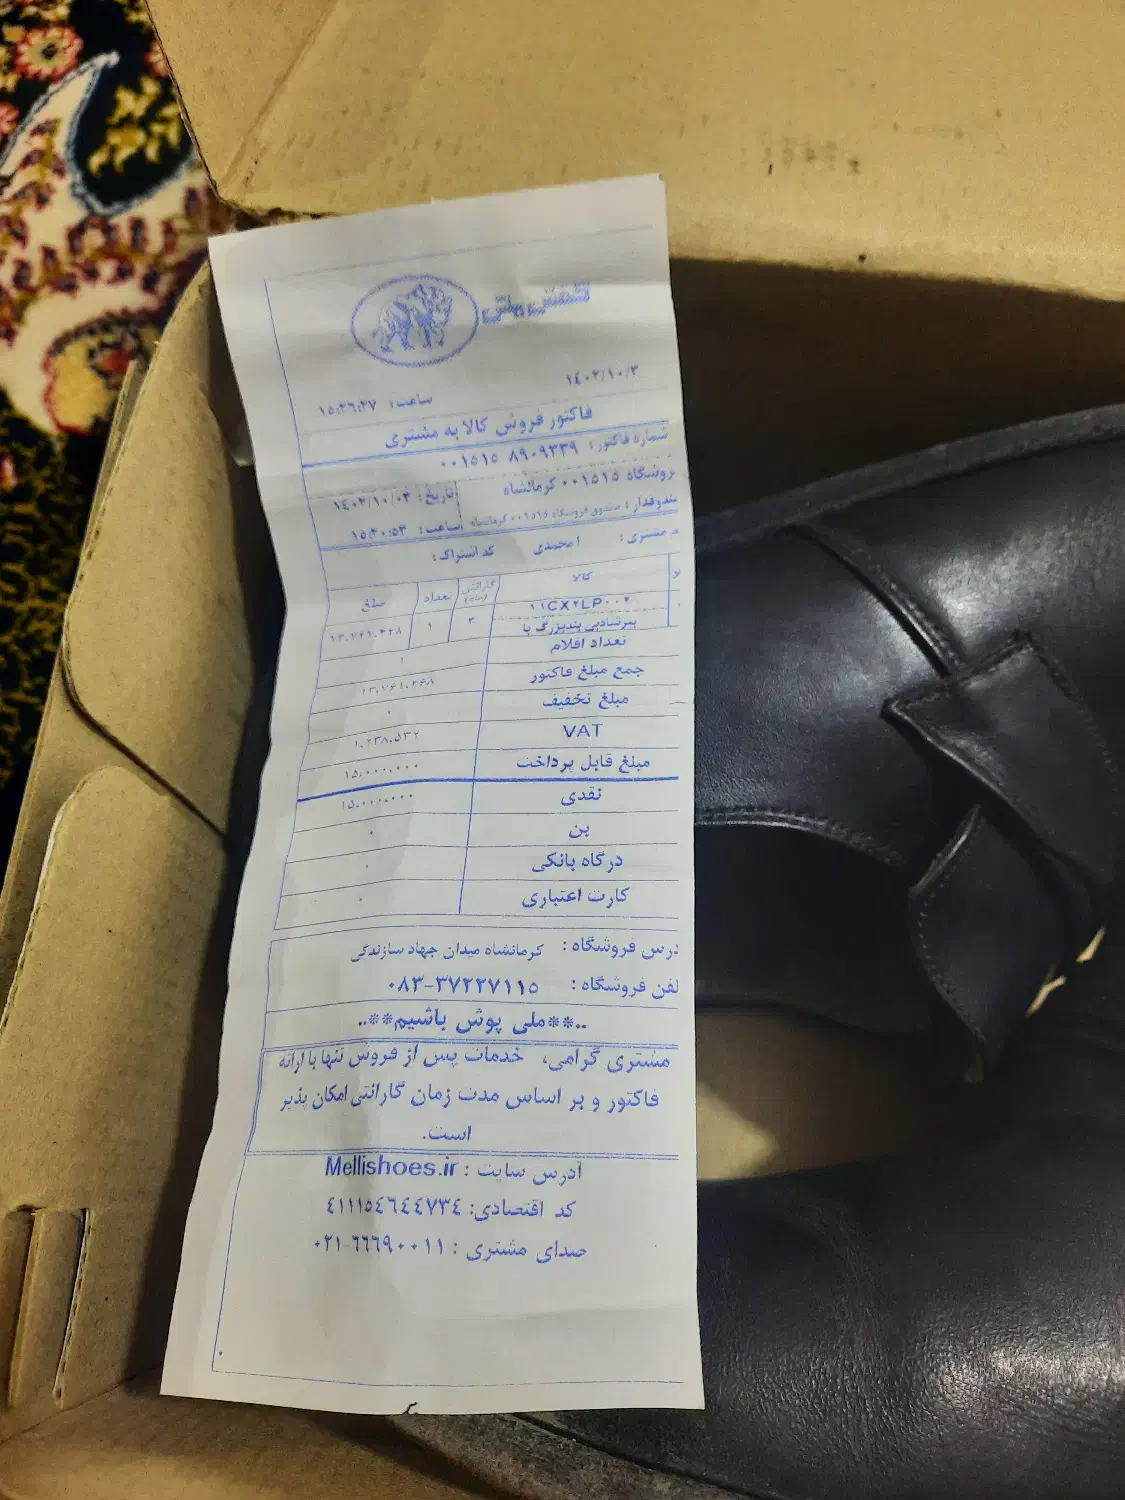 کفش ملی
۱۴۰۲/۱۰/۳
ساعت: ۱۵:۲۶:۲۷
فاکتور فروش کالا به مشتری
شماره فاکتور: ۸۹۰۹۳۳۹ ۰۰۱۵۱۵
روشگاه ۰۰۱۵۱۵ کرمانشاه
تاریخ: ۱۴۰۲/۱۰/۰۳
ندوقدار: صندوق فروشگاه ۰۰۱۵۱۵ کرمانشاه
ساعت: ۱۵:۲۰:۵۳
م مشتری: امحمدی کد اشتراک:
کالا گارانتی (ماه) تعداد مبلغ
۱۱CX۲LP۰۰۲
بندبزرگ با ۳ ۱
تعداد اقلام ۱
جمع مبلغ فاکتور
مبلغ تخفیف ۰
VAT ۱.۲۳۸.۵۳۲
مبلغ قابل پرداخت ۱۵.۰۰۰.۰۰۰
نقدی ۱۵.۰۰۰.۰۰۰
بن ۰
درگاه بانکی ۰
کارت اعتباری ۰
درس فروشگاه: کرمانشاه میدان جهاد سازندگی
لفن فروشگاه: ۰۸۳-۳۷۲۲۷۱۱۵
..**ملی پوش باشیم**..
مشتری گرامی، خدمات پس از فروش تنها با ارائه
فاکتور و بر اساس مدت زمان گارانتی امکان پذیر
است.
آدرس سایت : Mellishoes.ir
کد اقتصادی: ۴۱۱۱۵۴۶۴۴۷۳۴
صدای مشتری : ۰۲۱-۶۶۶۹۰۰۱۱